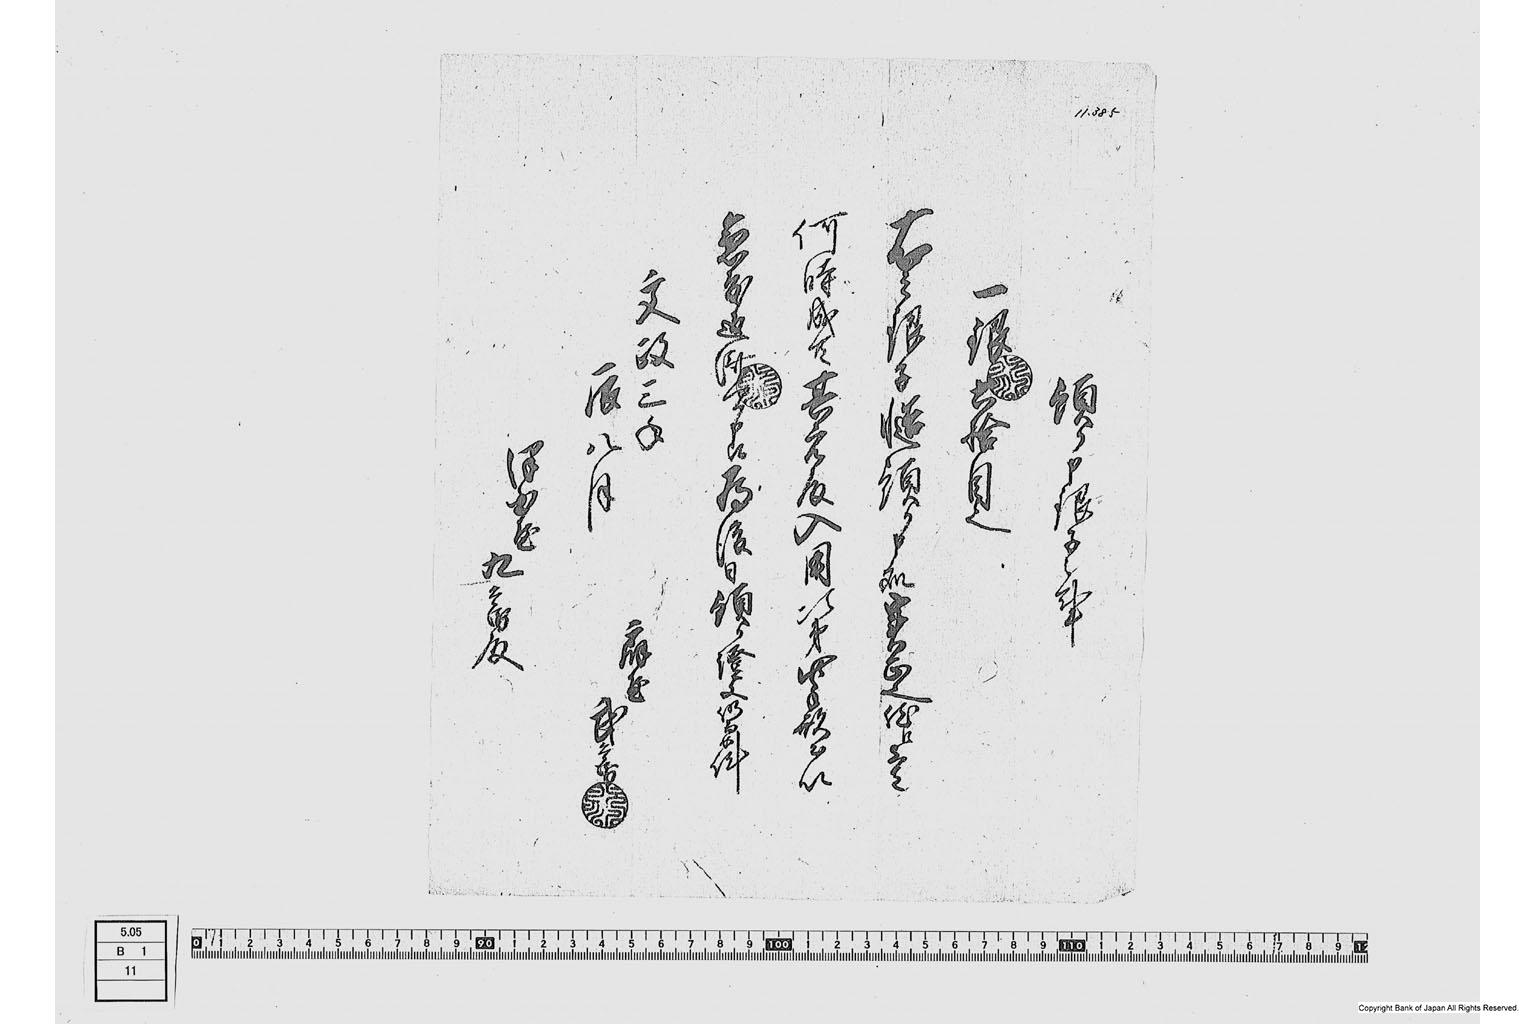 11.385
預り申銀子之事
一銀六拾目也
右之銀子慥預り申処実正也然上者
何時成共其元殿入用次第此手形を以
急度返済可申候為後日預り証文仍而如件
文政三年
辰八月
麻屋
武兵衛
澤屋
九兵衛殿
5.05
B 1
11
0 1 2 3 4 5 6 7 8 9 90 1 2 3 4 5 6 7 8 9 100 1 2 3 4 5 6 7 8 9 110 1 2 3 4 5 6 7 8 9
Copyright Bank of Japan All Rights Reserved.